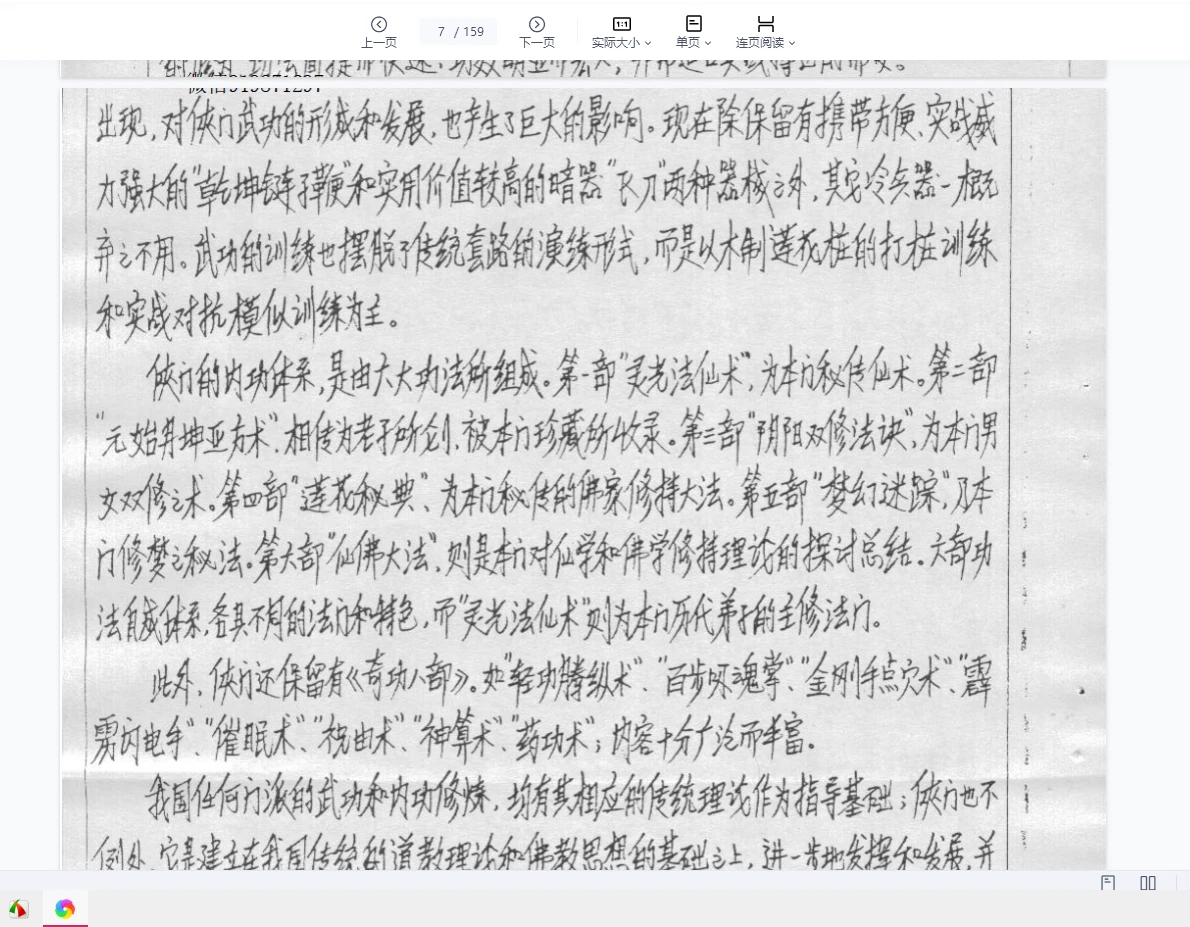 7 / 159
上一页
下一页
实际大小
单页
连页阅读
出现,对侠门武功的形成和发展,也产生了巨大的影响。现在除保留有携带方便、实战威
力强大的“乾坤链子鞭”和实用价值较高的暗器“飞刀”两种器械之外,其它冷兵器一概
弃之不用。武功的训练也摆脱了传统套路的演练形式,而是以木制莲花桩的打桩训练
和实战对抗模似训练为主。
侠门的内功体系,是由六大功法所组成。第一部“灵光法仙术”,为本门秘传仙术。第二部
“元始乾坤亚方术”,相传为老子所创、被本门珍藏所收录。第三部“阴阳双修法诀”,为本门男
女双修之术。第四部“莲花秘典”、为本门秘传的佛家修持大法。第五部“梦幻迷踪”,乃本
门修梦之秘法。第六部“仙佛大法”,则是本门对仙学和佛学修持理论的探讨总结。六部功
法自成体系,各具不同的法门和特色,而“灵光法仙术”则为本门历代弟子的主修法门。
此外,侠门还保留有《奇功八部》。如“轻功腾纵术”、“百步吸魂掌”、“金刚手点穴术”、“霹
雳闪电手”、“催眠术”、“祝由术”、“神算术”、“药功术”;内容十分广泛而丰富。
我国任何门派的武功和内功修炼,均有其相应的传统理论作为指导基础;侠门也不
例外,它是建立在我国传统的道教理论和佛教思想的基础之上,进一步地发挥和发展,并